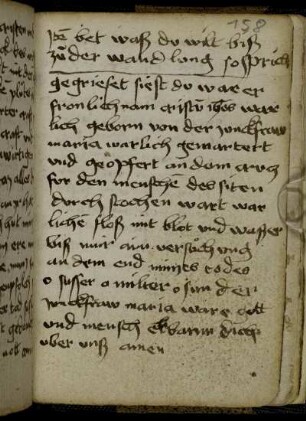 158
bet waß du wilt biß
zu der wandlong so sprich
gegrieset siest du warer
fronlichnam cristi ihs ware
lich geborn von der junckfraw
maria warlich gemartert
vnd geopfert an dem crutz
for den menschen des siten
durch stochen wart war
lichen floß mit blot vnd wasser
biß mir ain versuchung
an dem end mines todes
o susser o milter o sun der
junckfraw maria ware gott
vnd mensch erbarm dich
vber vnß amen